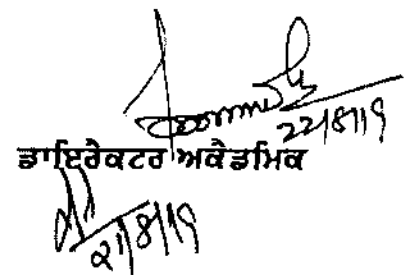 22/8/19
ਡਾਇਰੈਕਟਰ ਅਕੈਡਮਿਕ
21/8/19